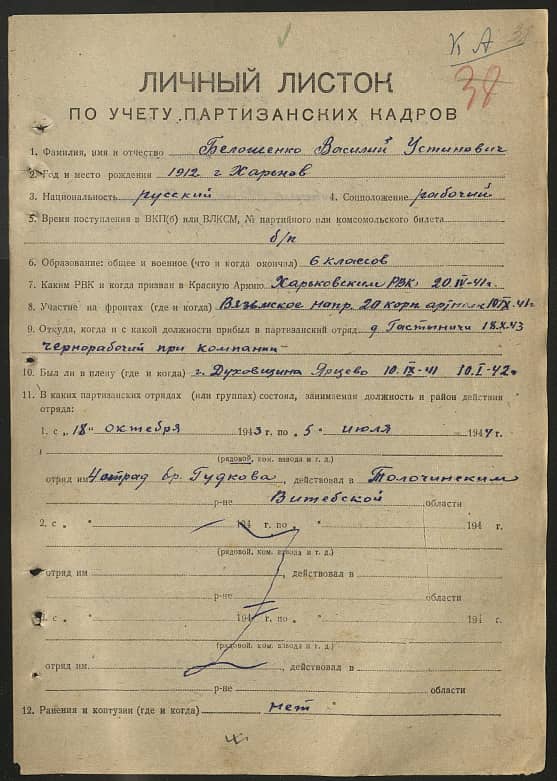 К А 38
38
ЛИЧНЫЙ ЛИСТОК
ПО УЧЕТУ ПАРТИЗАНСКИХ КАДРОВ
1. Фамилия, имя и отчество Белошенко Василий Устинович
2. Год и место рождения 1912 г Харьков
3. Национальность русский 4. Соцположение рабочий
5. Время поступления в ВКП(б) или ВЛКСМ, № партийного или комсомольского билета
б/п
6. Образование: общее и военное (что и когда окончил) 6 классов
7. Каким РВК и когда призван в Красную Армию Харьковским РВК 20 IV-41 г.
8. Участие на фронтах (где и когда) Вяземское напр. 20 корп. 10 IX-41 г.
9. Откуда, когда и с какой должности прибыл в партизанский отряд д Гастыничи 18.X.43
чернорабочий при компании
10. Был ли в плену (где и когда) г. Духовщина Ярцево 10. IX-41 10. I-42 г
11. В каких партизанских отрядах (или группах) состоял, занимаемая должность и район действия
отряда:
1. с „18" октября 1943 г. по „5" июля 1944 г.
(рядовой, ком. взвода и т. д.)
отряд им 4 отряд бр. Гудкова, действовал в Толочинским
р-не Витебской области
2. с „ " 194 г. по „ " 194 г.
(рядовой, ком. взвода и т. д.)
отряд им , действовал в
р-не области
3. с „ " 194 г. по „ " 194 г.
(рядовой, ком. взвода и т. д.)
отряд им. , действовал в
р-не области
12. Ранения и контузии (где и когда) нет